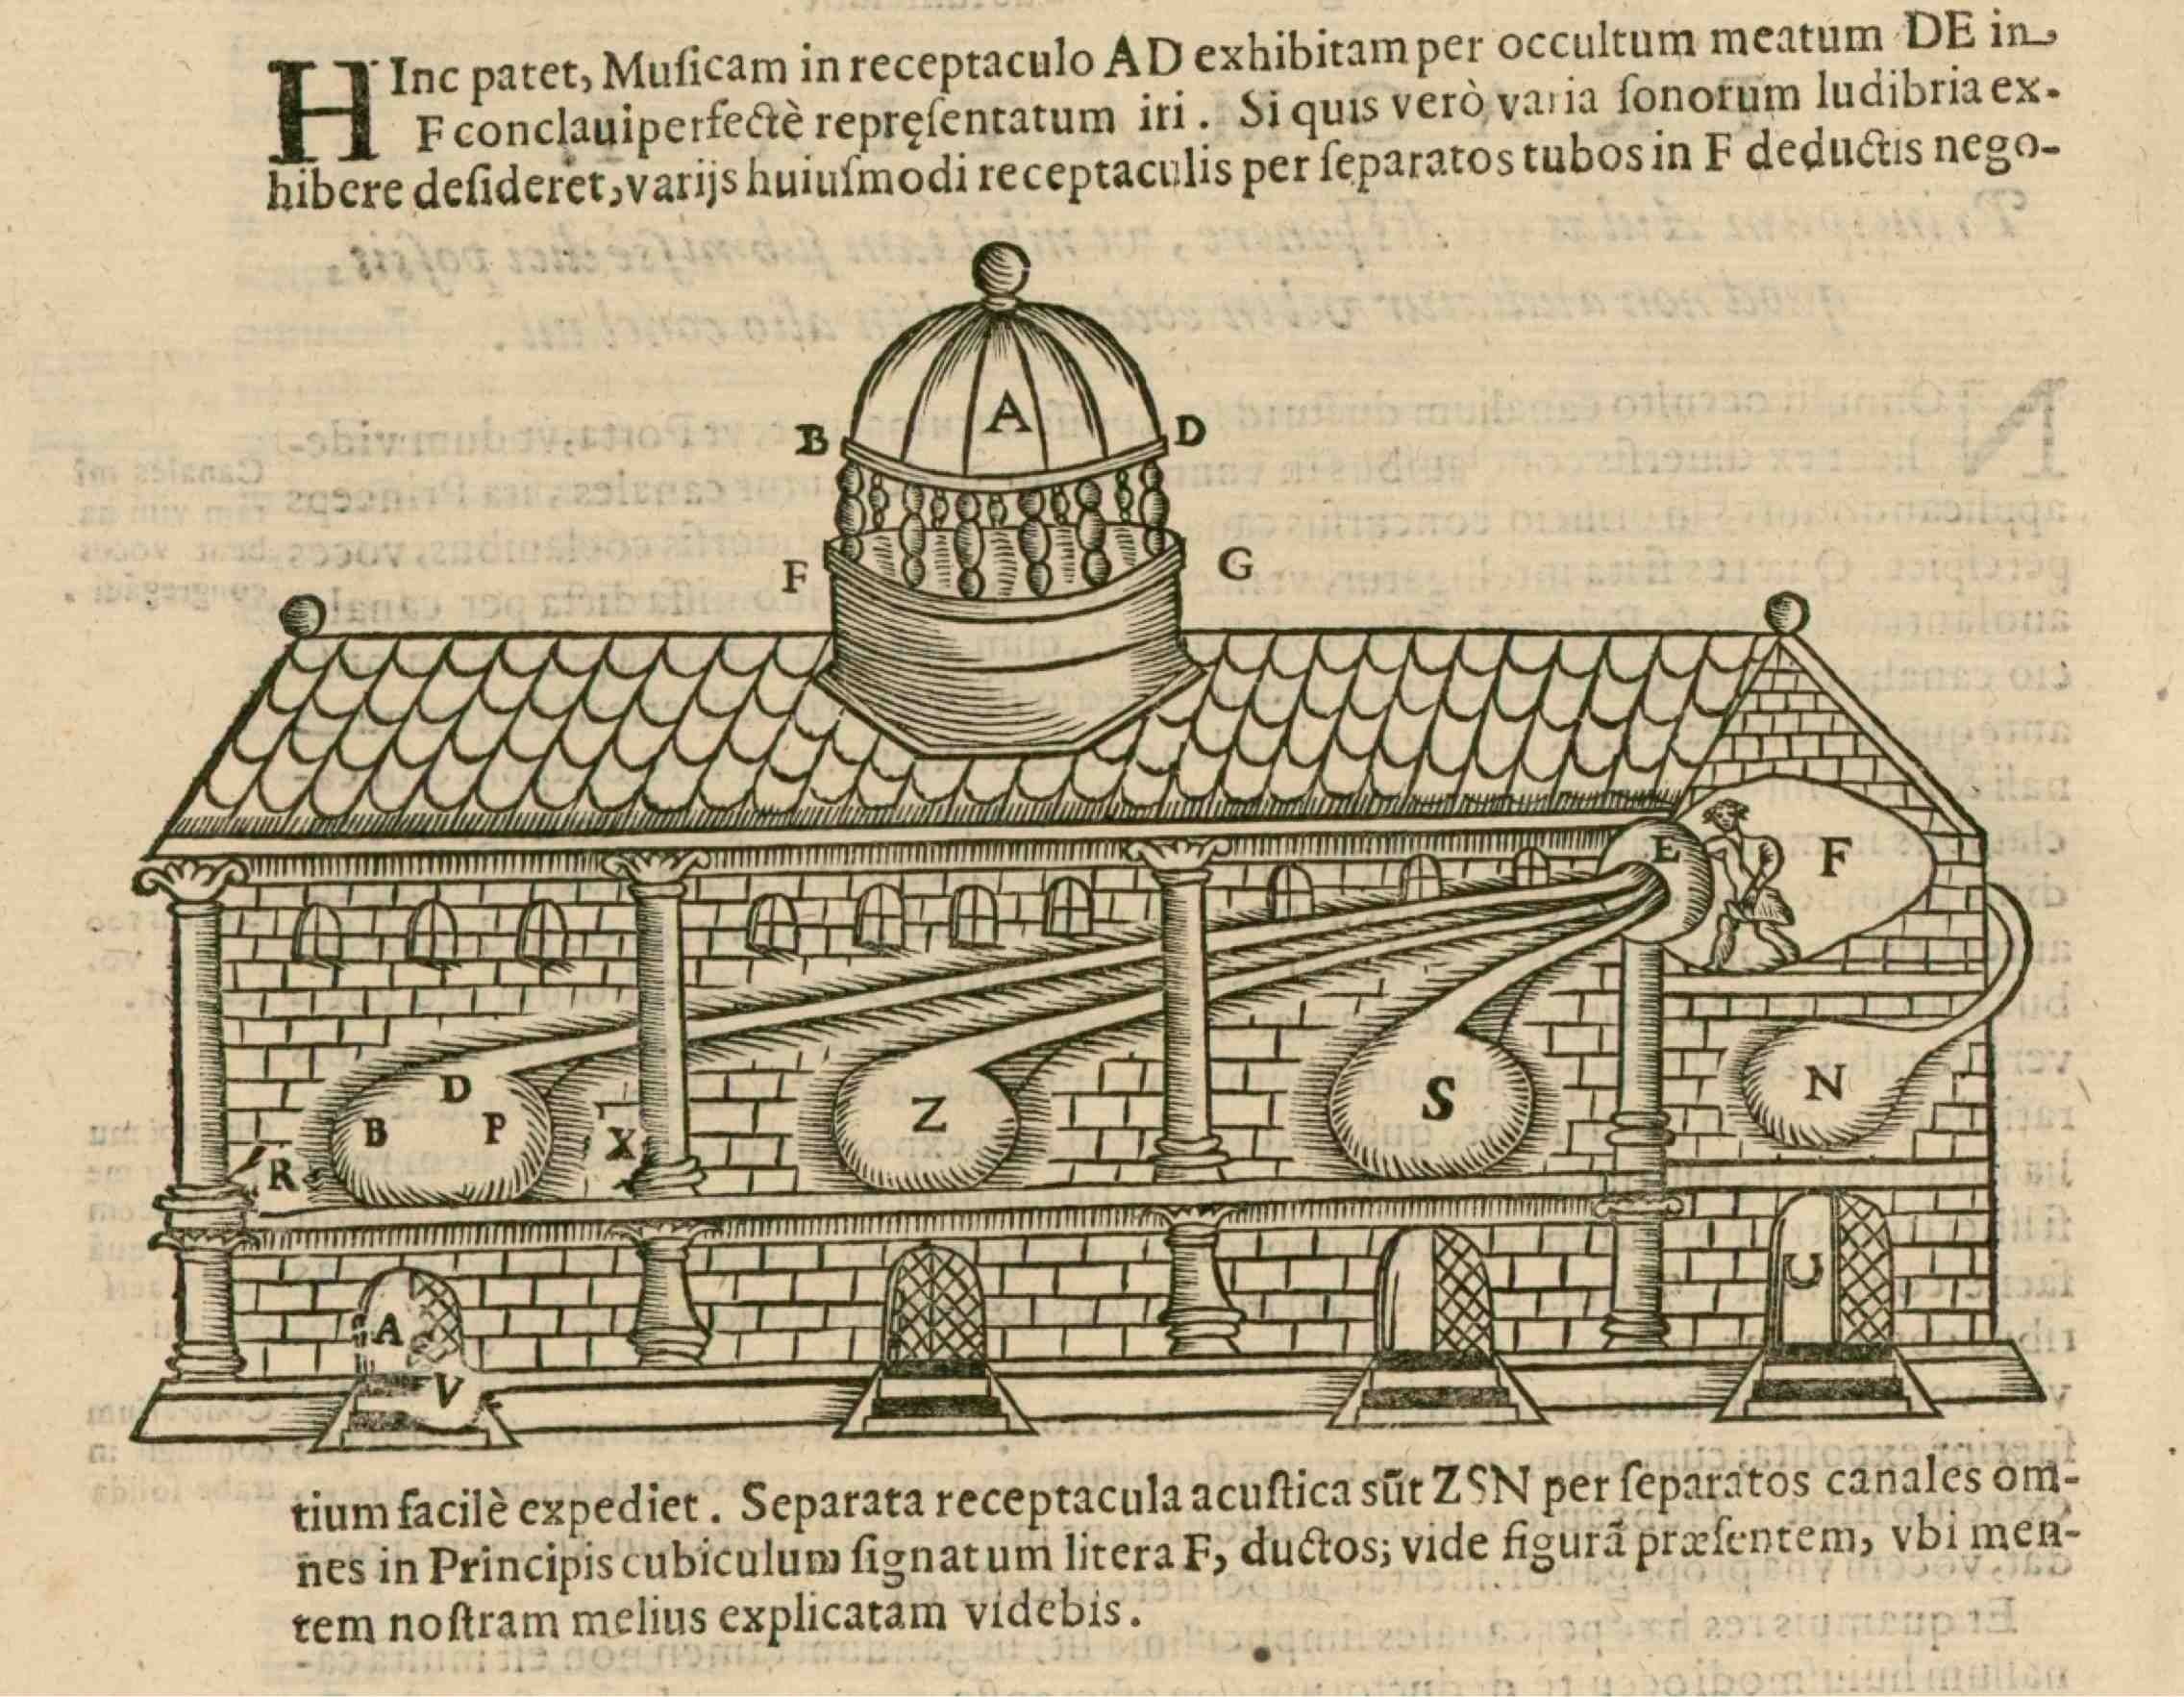 HInc patet, Muſicam in receptaculo AD exhibitam per occultum meatum DE in
F conclaui perfectè repręſentatum iri. Si quis verò varia ſonorum ludibria ex-
hibere deſideret, varijs huiuſmodi receptaculis per ſeparatos tubos in F deductis nego-
A
B D
F G
E F
D
B P Z S N
R X
A
V
tium facilè expediet. Separata receptacula acuſtica sūt ZSN per ſeparatos canales om-
nes in Principis cubiculum ſignatum litera F, ductos; vide figurā præſentem, vbi men-
tem noſtram melius explicatam videbis.